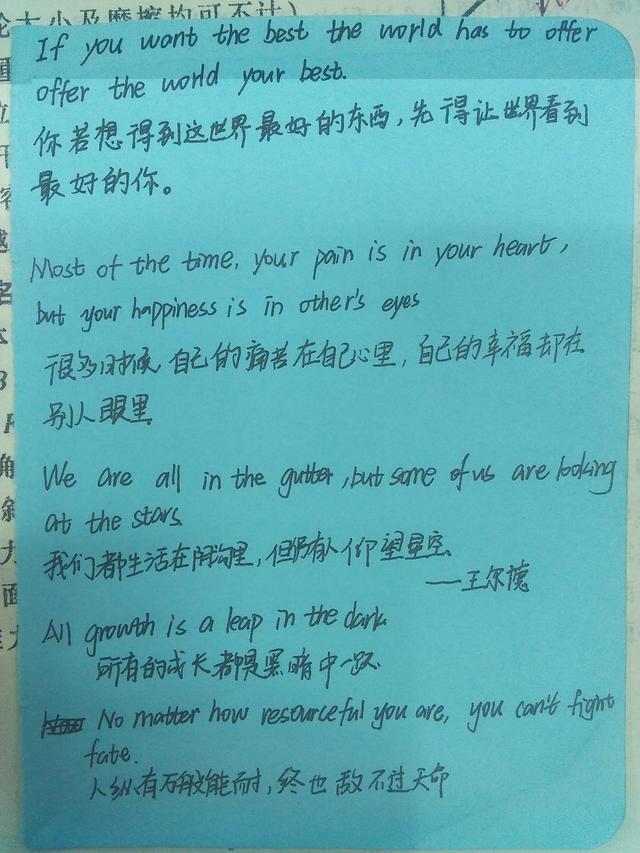 论大小及摩擦均可不计）
If you want the best the world has to offer
offer the world your best.
你若想得到这世界最好的东西，先得让世界看到
最好的你。
Most of the time, your pain is in your heart,
but your happiness is in other's eyes
很多时候，自己的痛苦在自己心里，自己的幸福却在
别人眼里
We are all in the gutter, but some of us are looking
at the stars.
我们都生活在阴沟里，但仍有人仰望星空。
——王尔德
All growth is a leap in the dark.
所有的成长都是黑暗中一跃.
No matter how resourceful you are, you can't fight
fate.
人纵有万般能耐，终也敌不过天命